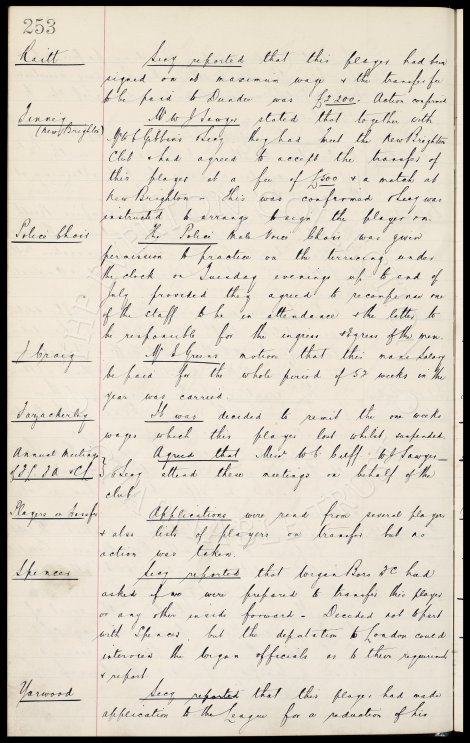 253
Raitt Secy reported that this player had been
signed on at maximum wage & the transfer fee
to be paid to Dundee was £2,200. Action confirmed
Finney Mr W J Sawyer stated that together with
(New Brighton) Mr W C Gibbins & Secy they had met the New Brighton
Club & had agreed to accept the transfer of
this player at a fee of £500 & a match at
New Brighton – This was confirmed & Secy was
instructed to arrange to sign the player on.
Police Choir The Police Male Voice Choir was given
permission to practice on the terracing under
the clock on Tuesday evenings up to end of
July provided they agreed to recompense one
of the staff to be in attendance & the latter to
be responsible for the ingress & egress of the men.
J Craig Mr Greens motion that this mans salary
be paid for the whole period of 52 weeks in the
year was carried.
Fazackerley It was decided to remit the one weeks
wages which this player lost whilst suspended
Annual Meetings Agreed that Messrs W C Cuff, W J Sawyer
& Secy attend these meetings on behalf of the
club
Players on transfer Applications were read from several players
& also lists of players on transfer but no
action was taken.
Spencer Secy reported that Wigan Boro FC had
asked if we were prepared to transfer this player
or any other inside forward – Decided not to part
with Spencer but the deputation to London could
interview the Wigan officials as to their requirements
& report
Yarwood Secy reported that this player had made
application to the League for a reduction of his